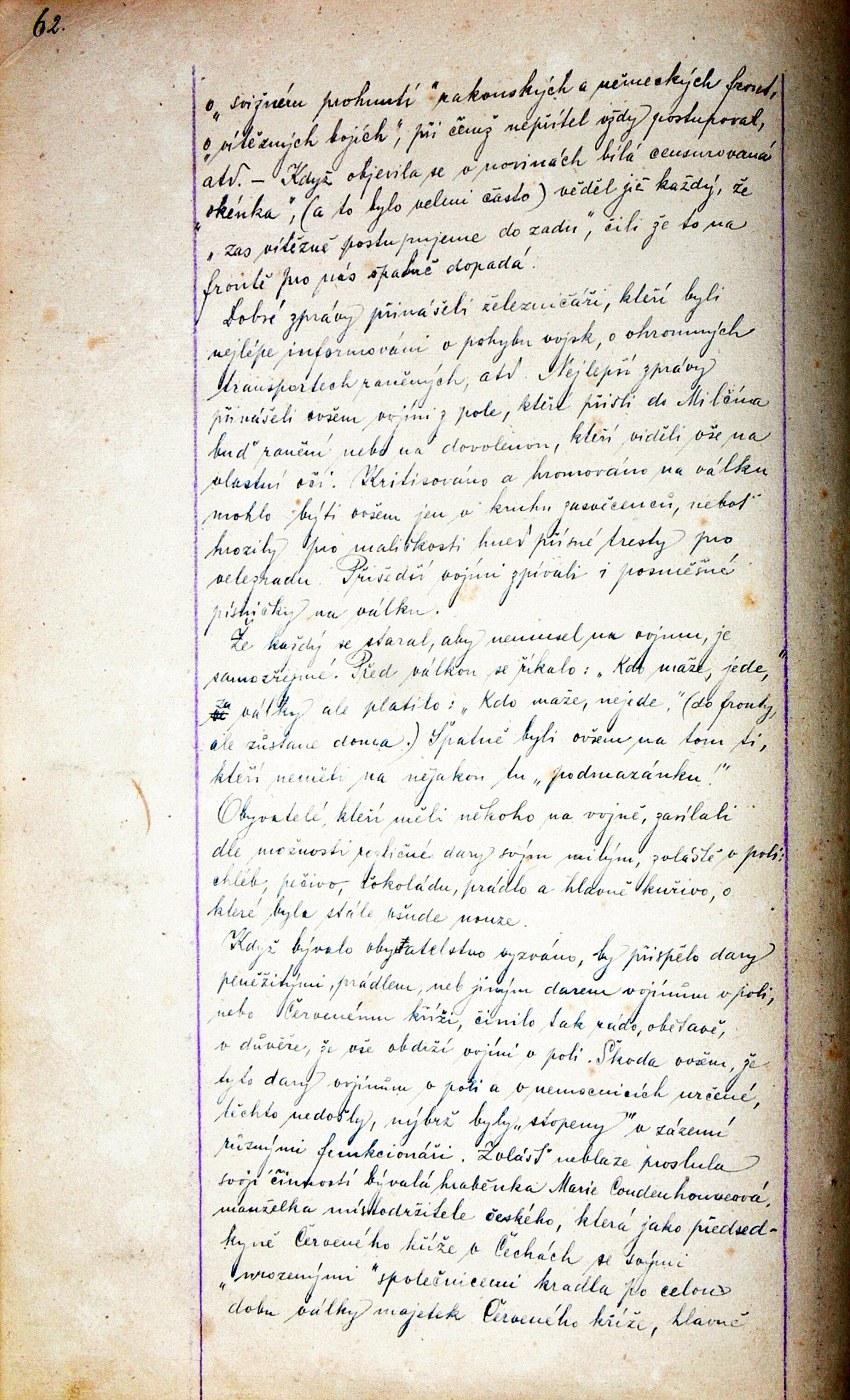 62.
o „svižném prohnutí" rakouských a německých front,
o „vítězných bojích", při čemž nepřítel vždy postupoval,
atd. – Když objevila se v novinách bílá censurovaná
„okénka", (a to bylo velmi často) věděl již každý, že
„zas vítězně postupujeme do zadu", čili že to na
frontě pro nás špatně dopadá.
Dobré zprávy přinášeli železničáři, kteří byli
nejlépe informováni o pohybu vojsk, o ohromných
transportech raněných, atd. Nejlepší zprávy
přinášeli ovšem vojíni z pole, kteří přišli do Milčína
buď ranění nebo na dovolenou, kteří viděli vše na
vlastní oči. Kritisováno a hromováno na válku
mohlo býti ovšem jen v kruhu zasvěcenců, neboť
hrozily pro maličkosti hned přísné tresty pro
velezradu. Přišedší vojíni zpívali i posměšné
písničky na válku.
Že každý se staral, aby nemusel na vojnu, je
samozřejmé. Před válkou se říkalo: „Kdo maže, jede,"
za války ale platilo: „Kdo maže, nejede," (do fronty,
ale zůstane doma.) Špatně byli ovšem na tom ti,
kteří neměli na nějakou tu „podmazánku!"
Obyvatelé, kteří měli někoho na vojně, zasílali
dle možnosti rozličné dary svým milým, zvláště v poli:
chléb, pečivo, čokoládu, prádlo a hlavně kuřivo, o
které byla stále všude nouze.
Když bývalo obyvatelstvo vyzváno, by přispělo dary
peněžitými, prádlem, neb jiným darem vojínům v poli,
nebo Červenému kříži, činilo tak rádo, obětavě,
v důvěře, že vše obdrží vojíni v poli. Škoda ovšem, že
tyto dary vojínům v poli a v nemocnicích určené,
těchto nedošly, nýbrž byly „stopeny" v zázemí
různými funkcionáři. Zvlášť neblaze proslula
svojí činností bývalá hraběnka Marie Coudenhouveová,
manželka místodržitele českého, která jako předsed-
kyně Červeného kříže v Čechách se svými
„urozenými" společnicemi kradla po celou
dobu války majetek Červeného kříže, hlavně